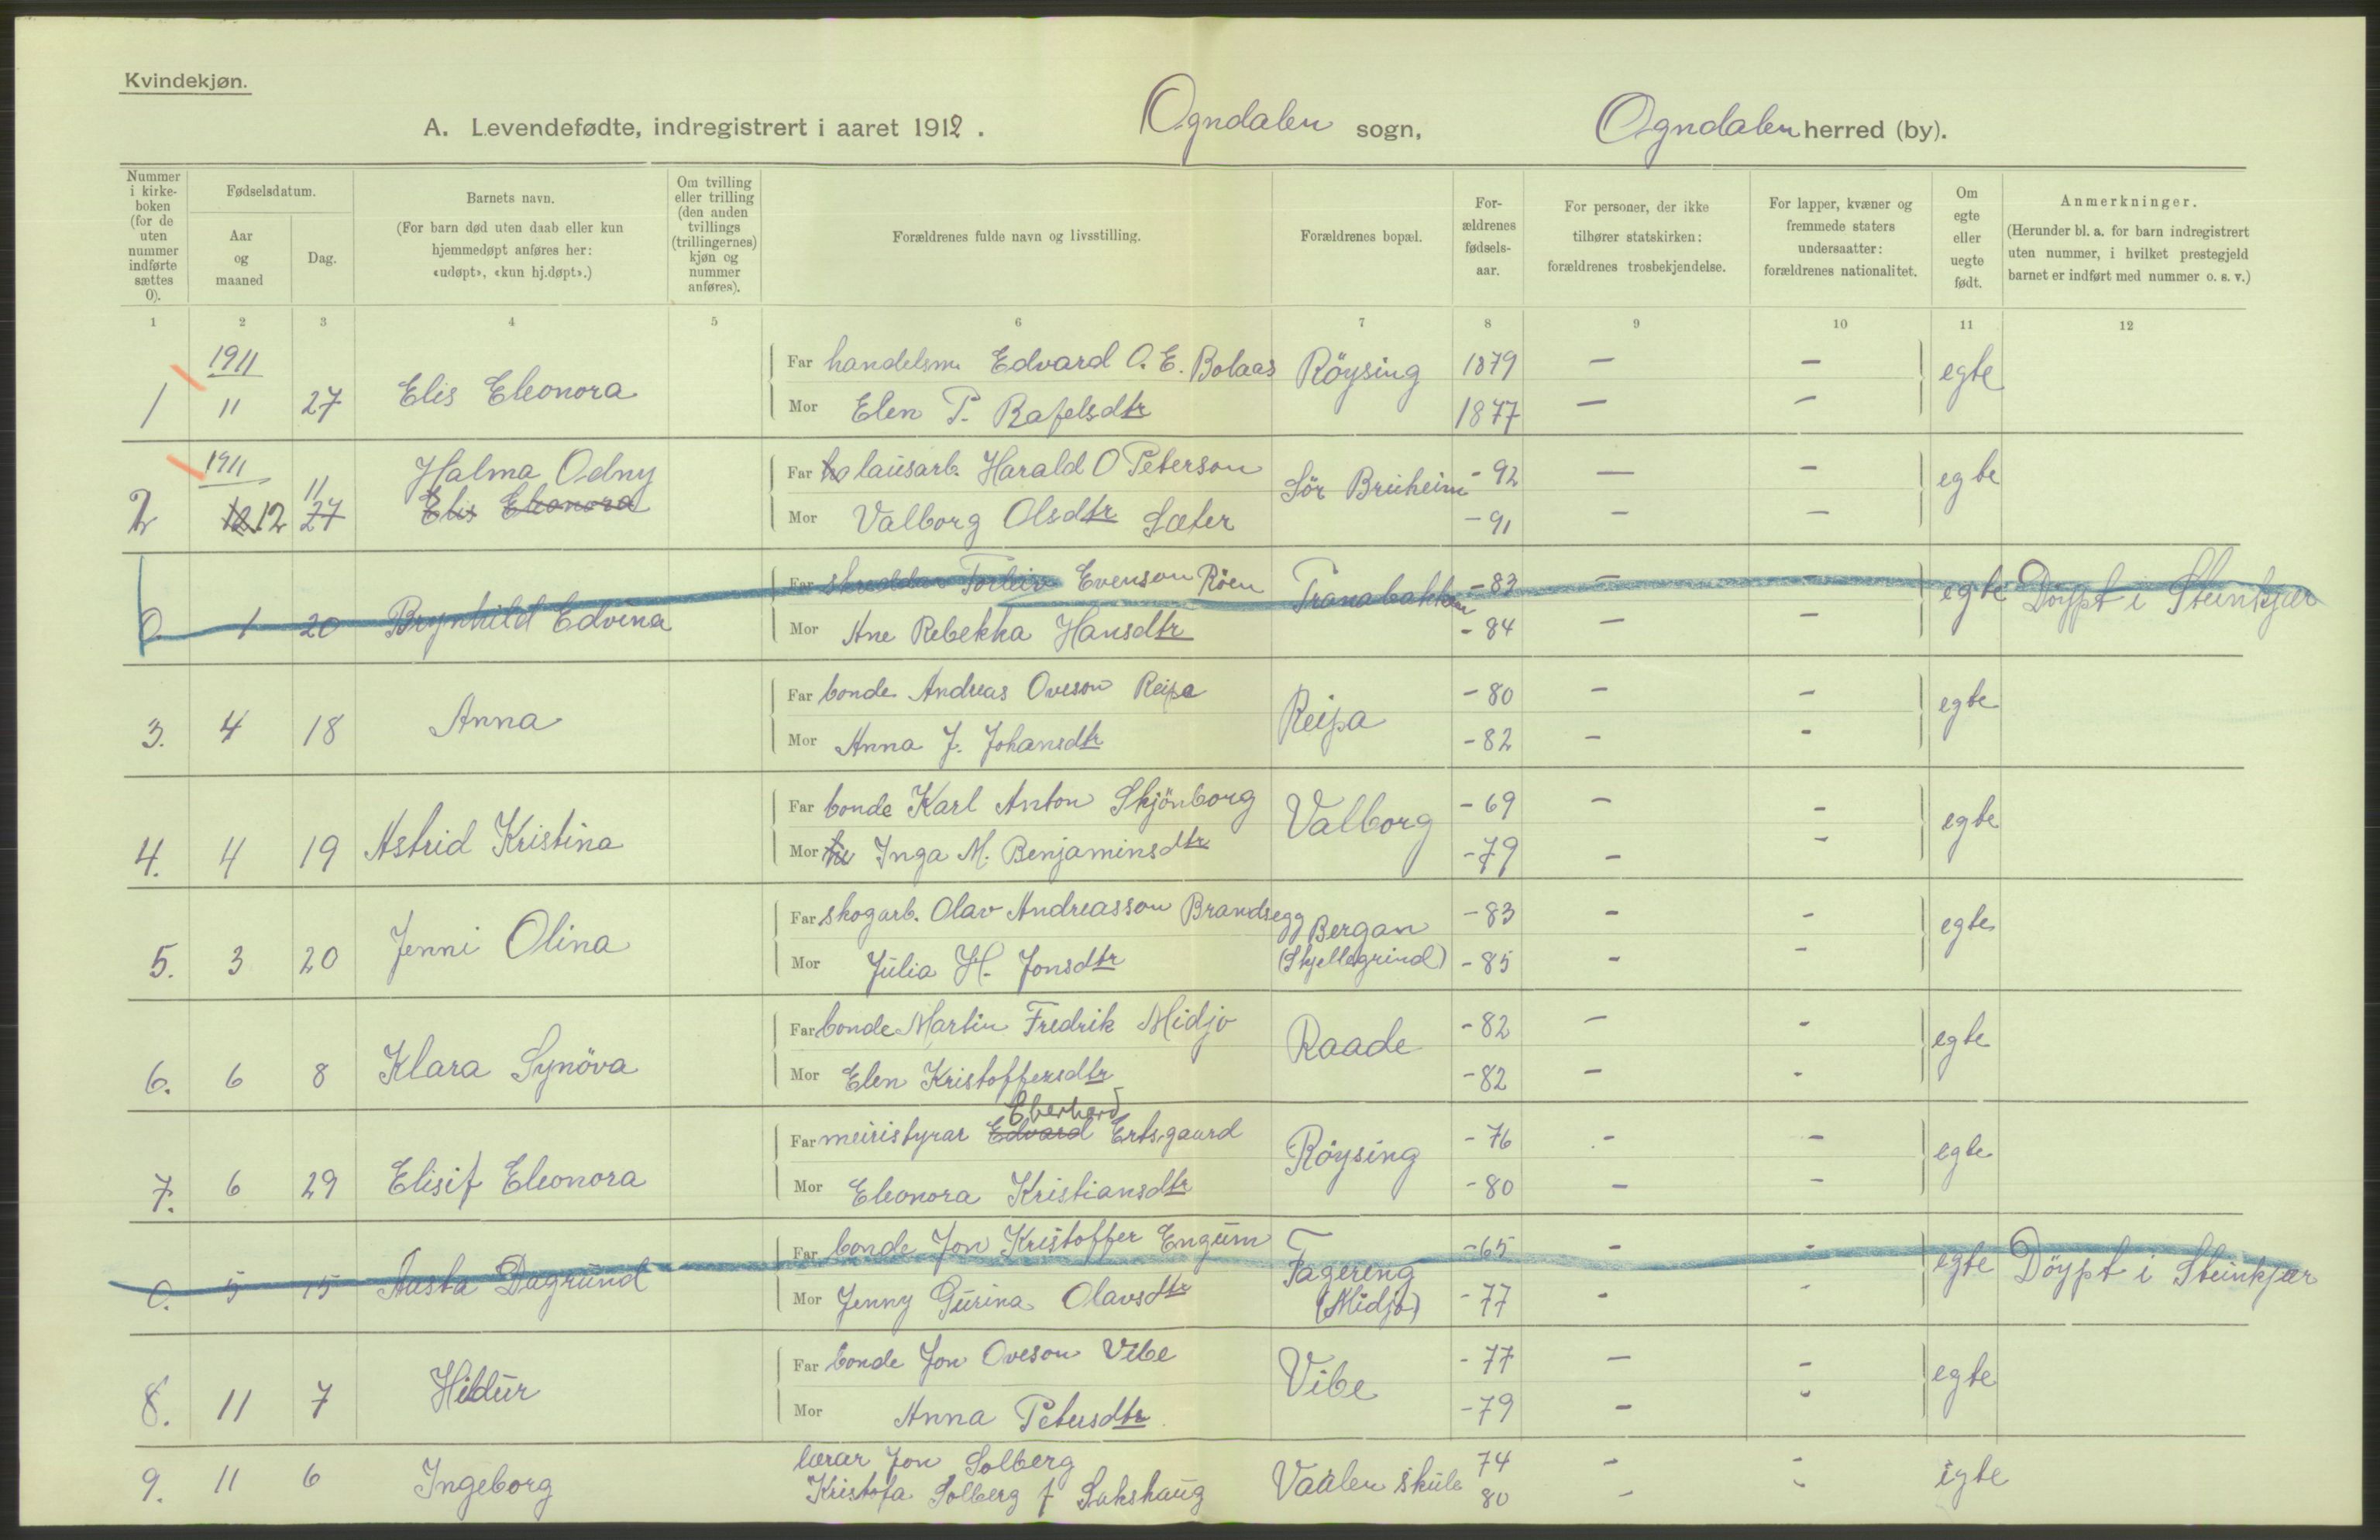 Kvindekjøn.
A. Levendefødte, indregistrert i aaret 1912. Ogndalen sogn, Ogndalen herred (by).
Nummer i kirkeboken (for de uten nummer indførte sættes 0).
Fødselsdatum.
Aar og maaned
Dag.
Barnets navn.
(For barn død uten daab eller kun hjemmedøpt anføres her: «udøpt», «kun hj.døpt».)
Om tvilling eller trilling (den anden tvillings (trillingernes) kjøn og nummer anføres).
Forældrenes fulde navn og livsstilling.
Forældrenes bopæl.
Forældrenes fødselsaar.
For personer, der ikke tilhører statskirken: forældrenes trosbekjendelse.
For lapper, kvæner og fremmede staters undersaatter: forældrenes nationalitet.
Om egte eller uegte født.
Anmerkninger.
(Herunder bl. a. for barn indregistrert uten nummer, i hvilket prestegjeld barnet er indført med nummer o. s. v.)
1 2 3 4 5 6 7 8 9 10 11 12
1911
Far handelsm. Edvard O. E. Bolaas Röysing 1879 — — egte
1 11 27 Elis Eleonora
Mor Elen P. Rafelsdtr 1877 — —
1911 11 Halma Odny
Far lausarb. Harald O Peterson Sör Bruheim - 92 — — egte
2 12 27 Elis Eleonora
Mor Valborg Olsdtr Sæter - 91 — —
Far skredder Torleiv Evenson Röen Tranabakken - 83 — — egte Döypt i Steinkjær
0. 1 20 Brynhild Edvina
Mor Ane Rebekka Hansdtr - 84 — —
Far bonde Andreas Oveson Reipa Reipa - 80 — — egte
3. 4 18 Anna
Mor Anna J. Johansdtr - 82 — -
Far bonde Karl Anton Skjönborg Valborg - 69 — — egte
4. 4 19 Astrid Kristina
Mor Inga M. Benjaminsdtr - 79 — —
Far skogarb. Olav Andreasson Brandsegg Bergan - 83 - - egte
5. 3 20 Jenni Olina
Mor Julia H. Jonsdtr (Skjellegrind) - 85 - -
Far bonde Martin Fredrik Midjo Raade - 82 — - egte
6. 6 8 Klara Synöva
Mor Elen Kristoffersdtr - 82 — -
Eberhard
Far meieristyrar Edvard Ertsgaard Röysing - 76 - — egte
7. 6 29 Elisif Eleonora
Mor Eleonora Kristiansdtr - 80 — -
Far bonde Jon Kristoffer Engum Fagereng - 65 - - egte Döypt i Steinkjær
0. 5 15 Aasta Dagrund
Mor Jenny Gurina Olavsdtr (Midjo) - 77 - -
Far bonde Jon Oveson Vibe Vibe - 77 — - egte
8. 11 7 Hildur
Mor Anna Petersdtr. - 79 — -
lærar Jon Solberg 74 - -
9. 11 6 Ingeborg Vaalen skule egte
Kristofa Solberg f Sakshaug 80 - -